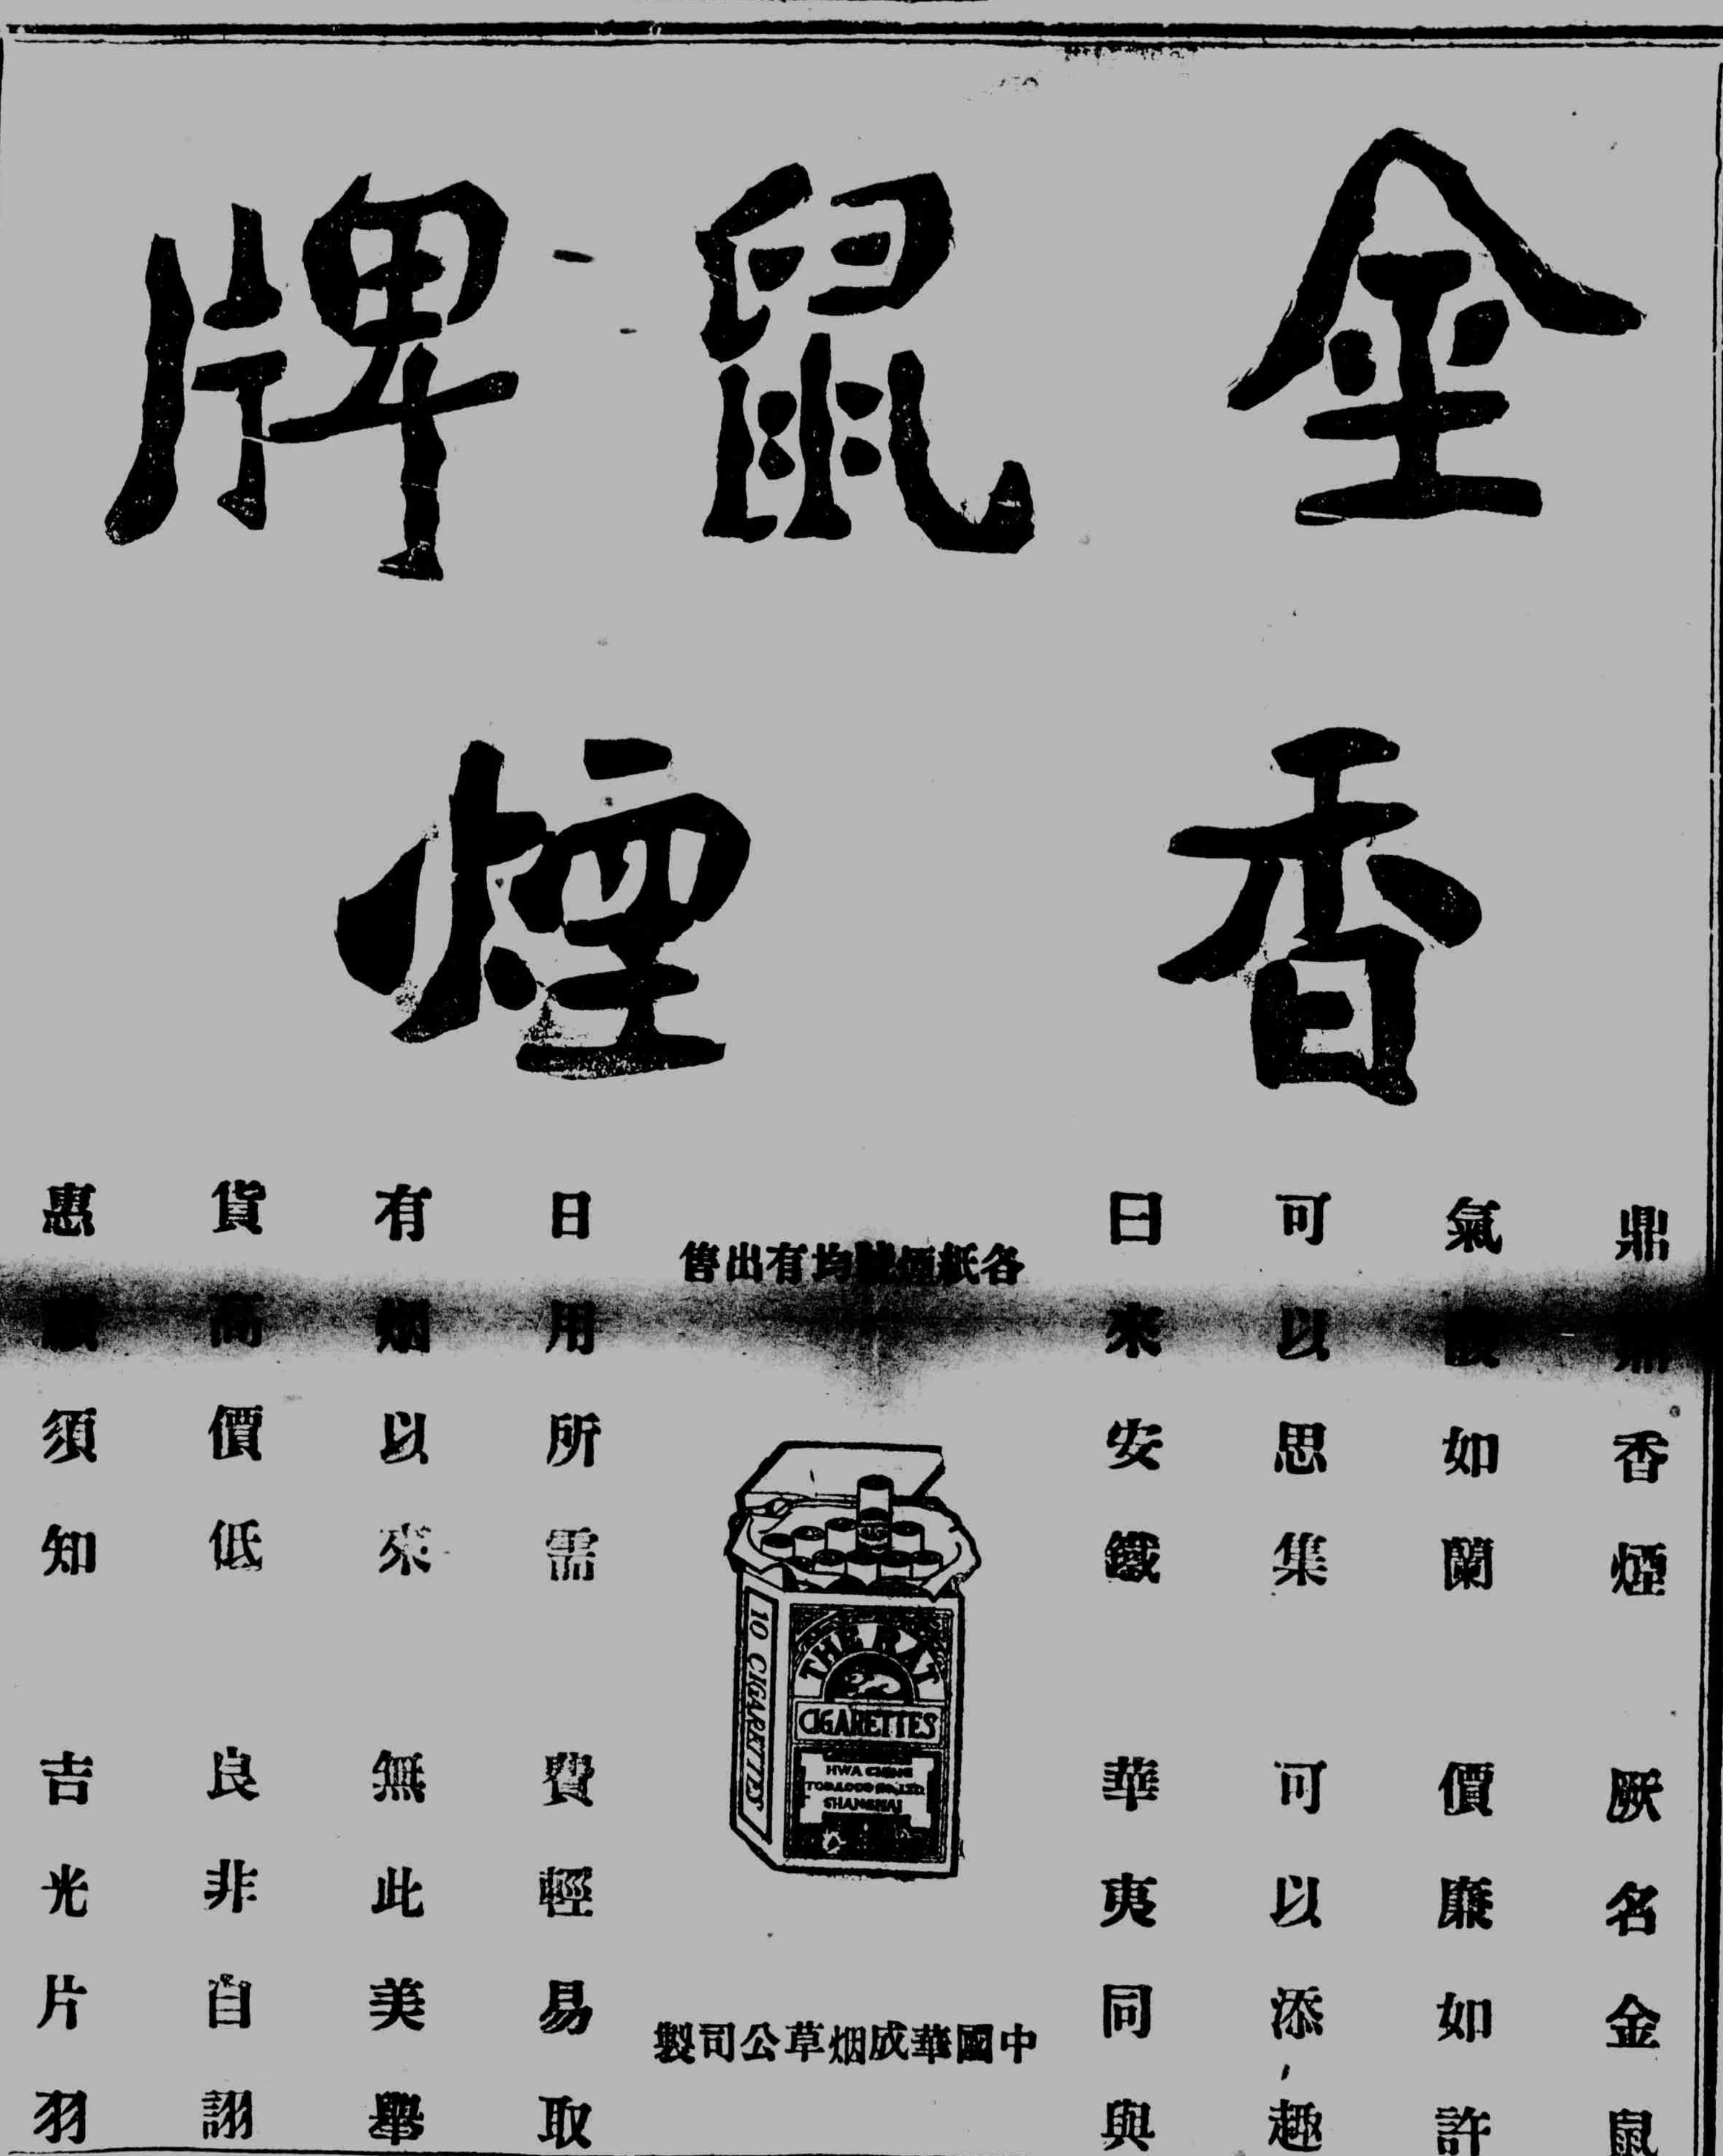 金鼠牌
香煙
鼎鼎香煙 厥名金鼠
氣馥如蘭 價廉如許
可以思集 可以添趣
曰來安鐵 華夷同與
各紙煙號均有出售
THE RAT
CIGARETTES
HWA CHING
TOBACCO CO. LTD.
SHANGHAI
10 CIGARETTES
中國華成烟草公司製
日用所需 費輕易取
有烟以來 無此美舉
貨高價低 良非自詡
惠顧須知 吉光片羽